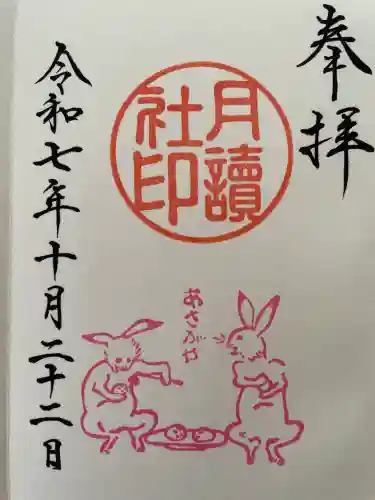 奉拝
月讀
社印
あさがや
令和七年十月二十二日